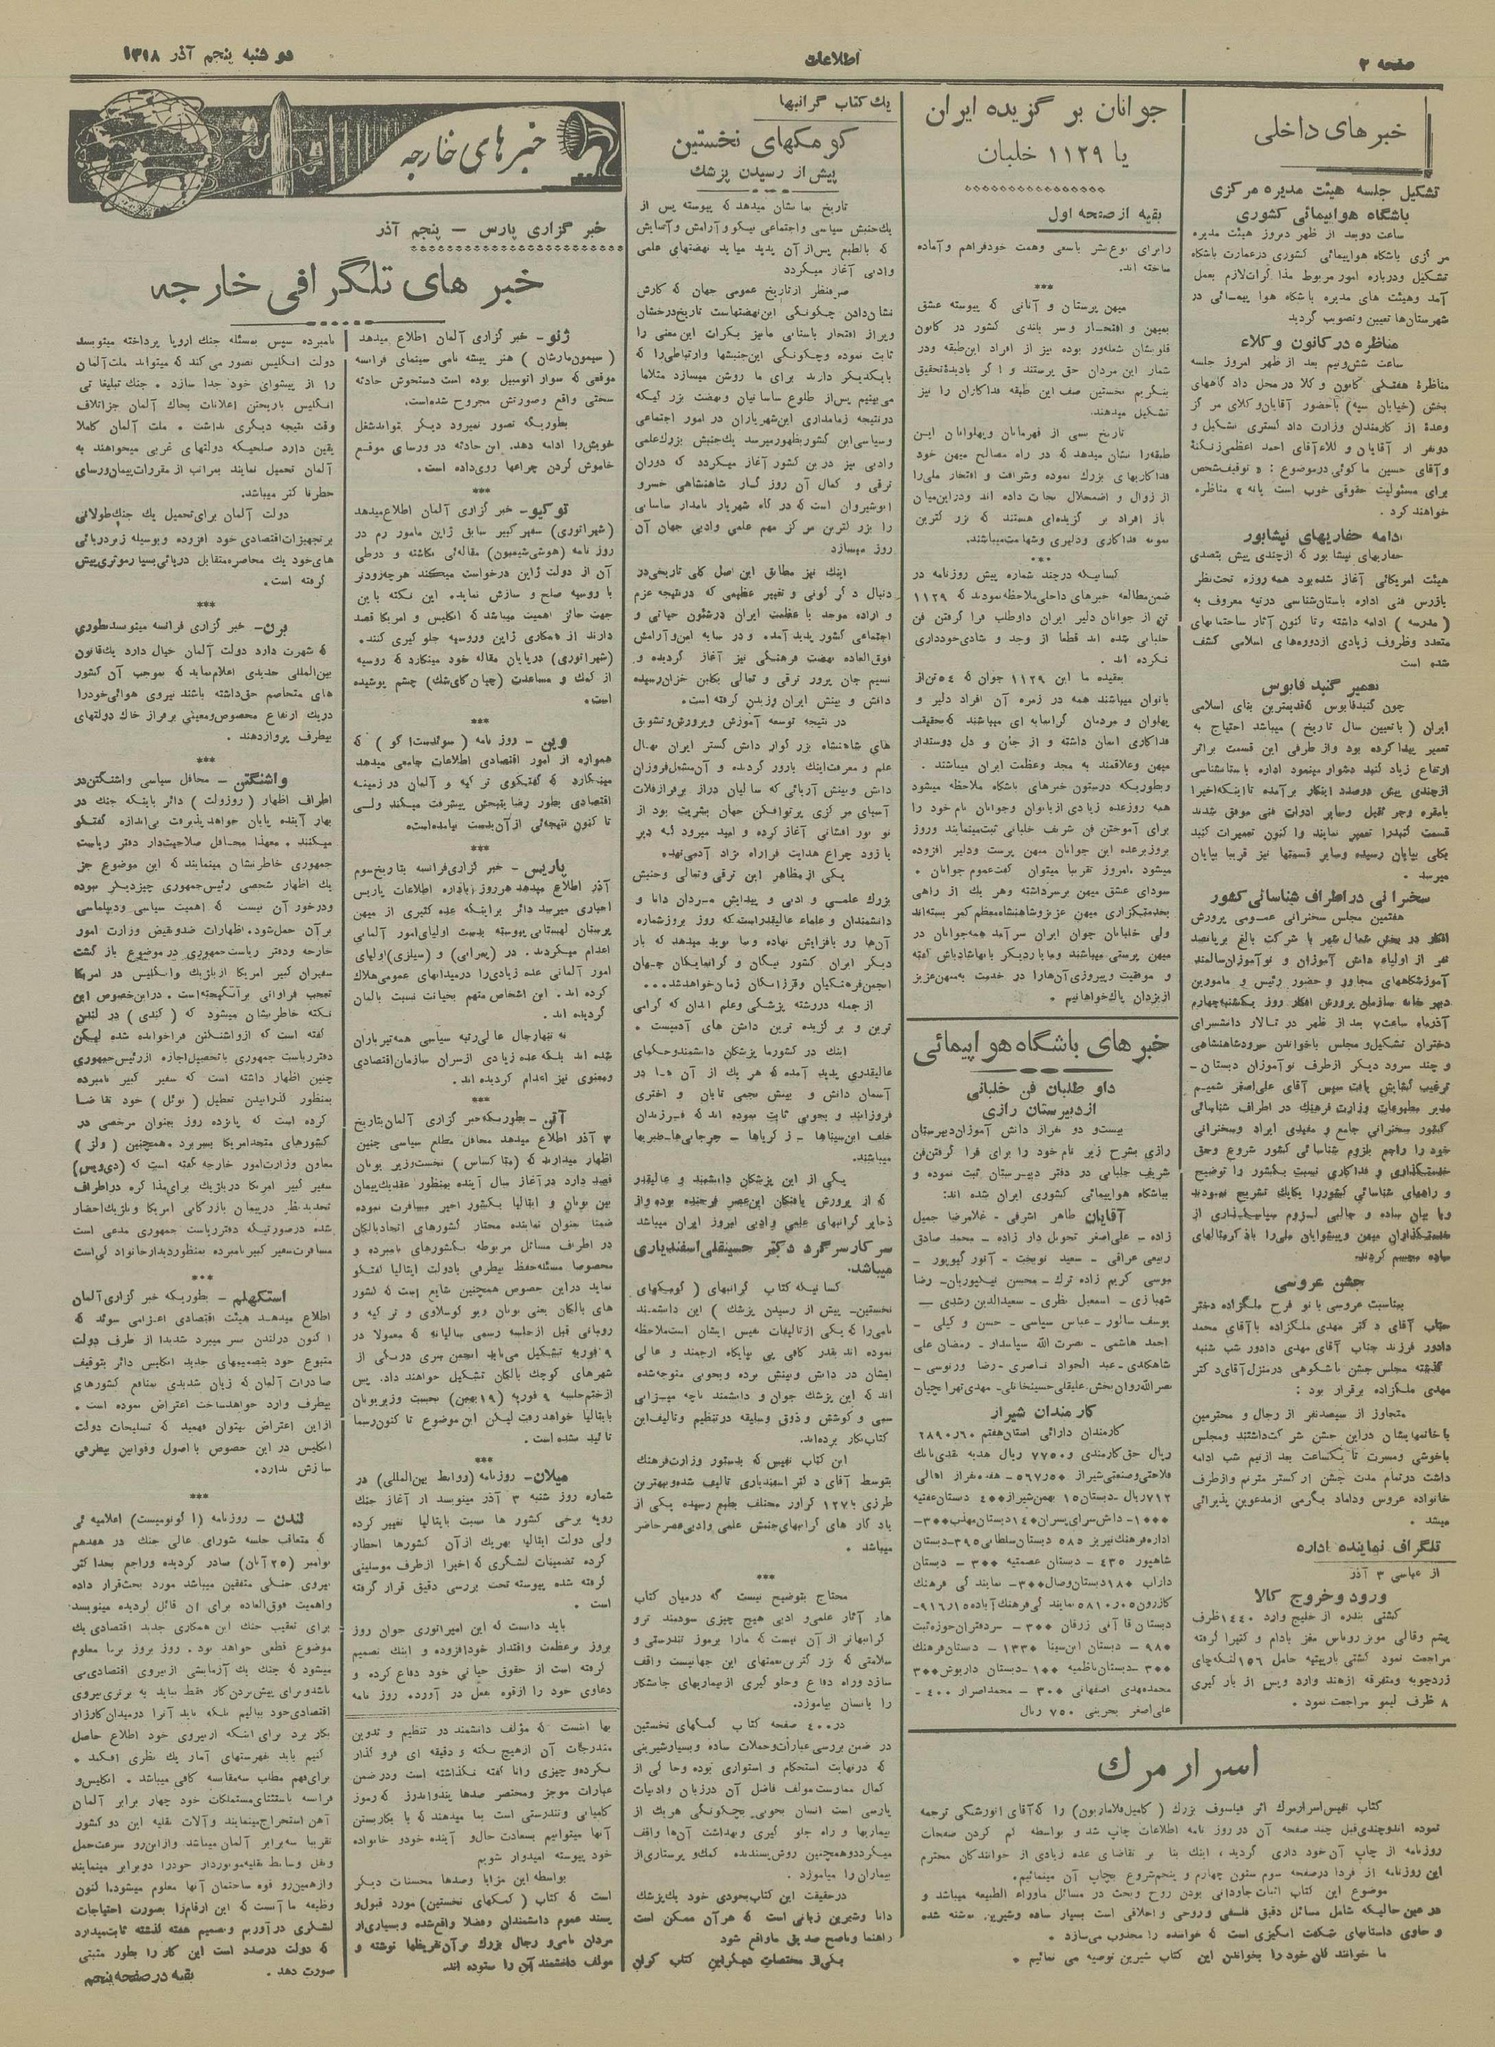 صفحه ۲
اطلاعات
دو شنبه پنجم آذر ۱۳۱۸
خبرهای داخلی
تشکیل جلسه هیئت مدیره مرکزی
باشگاه هواپیمائی کشوری
ساعت دوبعد از ظهر دیروز هیئت مدیره
مرکزی باشگاه هواپیمائی کشوری درعمارت باشگاه
تشکیل ودرباره امور مربوط مذاکرات لازم بعمل
آمد وهیئت های مدیره باشگاه هوا پیمائی در
شهرستان‌ها تعیین وتصویب گردید
مناظره در کانون وکلاء
ساعت شش‌ونیم بعد از ظهر امروز جلسه
مناظرهٔ هفتگی کانون وکلا در محل دادگاههای
بخش (خیابان سپه) باحضور آقایان‌وکلای مرکز
وعدهٔ از کارمندان وزارت دادگستری تشکیل و
دونفر از آقایان وکلاء آقای احمد اعظمی‌زنگنه
وآقای حسین ماکوئی درموضوع : « توقیف‌شخص
برای مسئولیت حقوقی خوب است یانه » مناظره
خواهند کرد .
ادامه حفاریهای نیشابور
حفاریهای نیشابور که ازچندی پیش بتصدی
هیئت امریکائی آغاز شده‌بود همه روزه تحت‌نظر
بازرس فنی اداره باستان‌شناسی درتپه معروف به
(مدرسه) ادامه داشته وتا کنون آثار ساختمانهای
متعدد وظروف زیادی ازدوره‌های اسلامی کشف
شده است
تعمیر گنبد قابوس
چون گنبدقابوس که‌قدیمترین بنای اسلامی
ایران ( باتعیین سال تاریخ ) میباشد احتیاج به
تعمیر پیدا کرده بود واز طرفی این قسمت براثر
ارتفاع زیاد گنبد دشوار مینمود اداره باستانشناسی
ازچندی پیش درصدد اینکار برآمده تااینکه اخیرا
قسمت گنبدرا تعمیر نمایند واکنون تعمیرات گنبد
بکلی بپایان رسیده وسایر قسمتها نیز قریبا بپایان
میرسد .
سخنرانی دراطراف شناسائی کشور
هفتمین مجلس سخنرانی عمومی پرورش
افکار در بخش شمال شهر با شرکت بالغ برپانصد
نفر از اولیاء دانش آموزان و نوآموزان‌سالمند
آموزشگاههای مجاور و حضور رئیس و مامورین
دبیر خانه سازمان پرورش افکار روز یکشنبه‌چهارم
آذرماه ساعت۷ بعد از ظهر در تالار دانشسرای
دختران تشکیل‌و مجلس باخواندن سرودشاهنشاهی
و چند سرود دیگر ازطرف نوآموزان دبستان
ترغیب گشایش یافت سپس آقای علی‌اصغر شمیم
مدیر مطبوعات وزارت فرهنگ در اطراف شناسائی
کشور سخنرانی جامع و مفیدی ایراد وسخنرانی
خود را راجع بلزوم شناسائی کشور شروع وحق
خدمتگذاری و فداکاری نسبت بکشور را توضیح
و راههای شناسائی کشوررا یکایک تشریح نمودند
جشن عروسی
بمناسبت عروسی بانو فرح ملکزاده دختر
جناب آقای دکتر مهدی ملکزاده باآقای محمد
دادور فرزند جناب آقای مهدی دادور شب شنبه
گذشته مجلس جشن باشکوهی درمنزل آقای دکتر
مهدی ملکزاده برقرار بود :
متجاوز از سیصدنفر از رجال و محترمین
باخانمهایشان دراین جشن شرکت‌داشتند ومجلس
باخوشی ومسرت تا یکساعت بعد ازنیم شب ادامه
داشت درتمام مدت جشن ارکستر مترنم وازطرف
خانواده عروس وداماد بگرمی ازمدعوین پذیرائی
میشد .
تلگراف نماینده اداره
از عباسی ۳ آذر
ورود وخروج کالا
کشتی بندره از خلیج وارد ۱۴۴۰ظرف
پشم وقالی مویز روناس مغز بادام و کتیرا گرفته
مراجعت نمود کشتی بارپیتیه حامل ۱۵۶لنگه‌چای
زردچوبه ومتفرقه ازهند وارد وپس از بارگیری
۸ ظرف لیمو مراجعت نمود .
جوانان برگزیده ایران
یا ۱۱۲۹ خلبان
بقیه از صفحه اول
رابرای نوع‌بشر باسعی وهمت خودفراهم وآماده
ساخته اند.
***
میهن پرستان و آنانی که پیوسته عشق
بمیهن و افتخار وسر بلندی کشور در کانون
قلوبشان شعله‌ور بوده نیز از افراد این‌طبقه ودر
شمار این مردان حق پرستند و اگر بادیدهٔ‌تحقیق
بنگریم نخستین صف این طبقه فداکاران را نیز
تشکیل میدهند.
تاریخ بسی از قهرمانان وپهلوانان این
طبقه‌را نشان میدهد که در راه مصالح میهن خود
فداکاریهای بزرگ نموده وشرافت و افتخار ملی‌را
از زوال و اضمحلال نجات داده اند ودراین‌میان
باز افراد برگزیده‌ای هستند که بزرگترین
نمونه فداکاری ودلیری وشهامت‌میباشند.
***
کسانیکه درچند شماره پیش روزنامه در
ضمن‌مطالعه خبرهای داخلی‌ملاحظه‌نمودند که ۱۱۲۹
تن از جوانان دلیر ایران داوطلب فراگرفتن فن
خلبانی شده اند قطعا از وجد و شادی‌خودداری
نکرده اند .
بعقیده ما این ۱۱۲۹ جوان که ۵۴تن‌از
بانوان میباشند همه در زمره آن افراد دلیر و
پهلوان و مردمان گرانمایه ای میباشند که‌بحقیقت
فداکاری ایمان داشته و از جان و دل دوستدار
میهن وعلاقمند به مجد وعظمت ایران میباشند .
وبطوریکه درستون خبرهای باشگاه ملاحظه میشود
همه روزعده زیادی ازبانوان وجوانان نام خود را
برای آموختن فن شریف خلبانی ثبت‌مینمایند وروز
بروزبرعده این جوانان میهن پرست ودلیر افزوده
میشود .امروز تقریبا میتوان گفت‌عموم جوانان .
سودای عشق میهن برسرداشته وهر یک از راهی
بخدمتگزاری میهن عزیز وشاهنشاه‌معظم کمر بسته‌اند
ولی خلبانان جوان ایران سرآمد همه‌جوانان در
میهن پرستی میباشند وما باردیگر بآنهاشادباش گفته
و موفقیت وپیروزی آن‌هارا در خدمت به‌میهن‌عزیز
ازیزدان پاک‌خواهانیم .
خبرهای باشگاه هواپیمائی
داوطلبان فن خلبانی
ازدبیرستان رازی
بیست‌و دو نفراز دانش آموزان‌دبیرستان
رازی بشرح زیر نام خود را برای فرا گرفتن‌فن
شریف خلبانی در دفتر دبیرستان ثبت نموده و
بباشگاه هواپیمائی کشوری ایران شده اند:
آقایان طاهر اشرفی - غلامرضا جمیل
زاده - علی‌اصغر تحویل دار زاده - محمد صادق
ربیعی عراقی - سعید نوبخت - آنور گیوپور -
موسی کریم زاده ترک - محسن نیکپوریان- رضا
شهبازی - اسمعیل نظری - سعیدالدین رشدی -
یوسف سالور - عباس سیاسی - حسن و کیلی -
احمد هاشمی - نصرت الله سپاسدار - رمضان علی
شاهکدی - عبد الجواد ناصری - رضا ورنوسی -
نصرالله‌روان‌بخش-علیقلی‌حسینخانی- مهدی‌تهرانچیان
کارمندان شیراز
کارمندان دارائی استان‌هفتم ۲۸۹۰ر۶۰
ریال حق‌کارمندی و۷۷۵۰ ریال هدیه نقدی‌بانک
۷۱۲ریال -دبستان۱۵ بهمن‌شیراز۴۰۰ دبستان‌عفتیه
۱۰۰۰- دانش‌سرای‌پسران۱۴۰ دبستان‌مهذب۳۰۰-
شاهپور ۴۳۵- دبستان عصمتیه ۳۰۰- دبستان
داراب ۱۸۰دبستان‌وصال۳۰۰- نمایندگی فرهنگ
دبستان قاآنی زرقان ۳۰۰
۹۸۰ - دبستان ابن‌سینا ۱۳۳۰ - دبستان‌فرهنگ
۳۰۰ -دبستان‌ناظمیه ۱۰۰- دبستان داریوش۳۰۰
محمدمهدی اصفهانی ۳۰۰- محمداصرار ۴۰۰-
علی‌اصغر بحرینی ۷۵۰ ریال
اسرار مرگ
کتاب نفیس‌اسرارمرگ اثر فیلسوف بزرگ ( کامیل‌فلاماریون) را که‌آقای انورشکی ترجمه
نموده اندوچندی‌قبل چند صفحه آن درروز نامه اطلاعات چاپ شد و بواسطه کم کردن صفحات
روزنامه از چاپ آن‌خود داری گردید ، اینک بنا بر تقاضای عده زیادی از خوانندگان محترم
این روزنامه از فردا درصفحه سوم ستون چهارم و پنجم‌شروع بچاپ آن مینمائیم.
موضوع این کتاب اثبات جاودانی بودن روح وبحث در مسائل ماوراء الطبیعه میباشد و
درعین حالیکه شامل مسائل دقیق فلسفی وروحی و اخلاقی است بسیار ساده وشیرین نوشته شده
و حاوی داستانهای شگفت انگیزی است که خواننده را مجذوب می‌سازد .
ما خوانندگان خود را بخواندن این کتاب شیرین توصیه می نمائیم .
یک کتاب گرانبها
کومکهای نخستین
پیش از رسیدن پزشک
تاریخ بما نشان میدهد که پیوسته پس از
یک‌جنبش سیاسی واجتماعی نیکو وآرامش وآسایش
که بالطبع پس‌از آن پدید میاید نهضتهای علمی
وادبی آغاز میگردد
صرفنظر ازتاریخ عمومی جهان که کارش
نشان‌دادن چگونگی این‌نهضتهاست تاریخ‌درخشان
وپراز افتخار باستانی مانیز بکرات این‌معنی را
ثابت نموده وچگونگی این‌جنبشها وارتباطی‌را که
بایکدیگر دارند برای ما روشن میسازد مثلاما
می‌بینیم پس‌از طلوع ساسانیان ونهضت بزرگیکه
درنتیجه زمامداری این‌شهریاران در امور اجتماعی
وسیاسی‌این کشوربظهورمیرسد یک‌جنبش بزرگ‌علمی
وادبی نیز دربن کشور آغاز میگردد که دوران
ترقی و کمال آن روزگار شاهنشاهی خسرو
انوشیروان است‌که درگاه شهریار نامدار ساسانی
را بزرگترین مرکز مهم علمی وادبی جهان آن
روز میسازد
اینک نیز مطابق این اصل کلی تاریخی‌در
دنبال دگرگونی و تغییر عظیمی که درنتیجه عزم
و اراده موجد باعظمت ایران درشئون حیاتی و
اجتماعی کشور پدید آمد، و در سایه امن‌وآرامش
فوق‌العاده نهضت فرهنگی نیز آغاز گردیده و
نسیم جان پرور ترقی و تعالی بکلبن خزان‌رسیده
دانش و بینش ایران وزیدن گرفته است.
در نتیجه توسعه آموزش وپرورش‌وتشویق
های شاهنشاه بزرگوار دانش گستر ایران نهال
علم و معرفت‌اینک بارور گردیده و آن‌مشعل‌فروزان
دانش وبینش آریائی که سالیان دراز برفرازفلات
آسیای مرکزی پرتوافکن جهان بشریت بود از
نو نور افشانی آغاز کرده و امید میرود که دیر
یازود چراغ هدایت فراراه نژاد آدمی‌نهد.
یکی‌ از مظاهر این ترقی وتعالی وجنبش
بزرگ علمی و ادبی و پیدایش مردان دانا و
دانشمندان و علماء عالیقدراست‌که روز بروزشماره
آن‌ها رو بافزایش نهاده وبما نوید میدهد که باز
دیگر ایران کشور نیکان و گرانمایگان جهان
انجمن‌فرهنگیان وفرزانگان زمان‌خواهدشد...
از جمله دررشته پزشکی وعلم ابدان که گرامی
ترین و برگزیده ترین دانش های آدمیست .
اینک در کشورما پزشکان دانشمندوحکمای
عالیقدری پدید آمده که هریک از آن هادر
آسمان دانش و بینش نجمی تابان و اختری
فروزانند و بخوبی ثابت نموده اند که فرزندان
خلف ابن‌سیناها - زکریاها - جرجانی‌ها-طبریها
میباشند.
یکی از این پزشکان دانشمند و عالیقدر
که از پرورش یافتگان این‌عصر فرخنده بوده‌واز
ذخایر گرانبهای علمی وادبی امروز ایران میباشد
سرکارسرگرد دکتر حسینقلی‌اسفندیاری
میباشد.
کسانیکه کتاب گرانبهای (کومکهای
نخستین- پیش از رسیدن پزشک) این دانشمند
نامی‌را که یکی ازتالیفات نفیس ایشان است‌ملاحظه
نموده اند بقدر کافی پی بپایگاه ارجمند و عالی
ایشان در دانش وبینش برده وبخوبی متوجه‌شده
اند که‌این پزشک جوان و دانشمند تاچه میزانی
سعی و کوشش و ذوق وسلیقه درتنظیم وتالیف‌این
کتاب‌بکار برده‌اند.
این کتاب نفیس که بدستور وزارت‌فرهنگ
بتوسط آقای دکتر اسفندیاری تالیف شده‌وبهترین
طرزی با۱۲۷ گراور مختلف بطبع رسیده یکی از
یادگارهای گرانبهای‌جنبش علمی وادبی‌عصرحاضر
میباشد .
***
محتاج بتوضیح نیست که درمیان کتاب
ها، آثار علمی‌و ادبی هیچ چیزی سودمند ترو
گرانبهاتر از آن نیست که مارا برموز تندرستی و
سلامتی که بزرگترین‌نعمتهای این جهانیست واقف
سازد وراه دفاع وجلوگیری از بیماریهای جانشکار
را بانسان بیاموزد.
در۴۰۰ صفحه کتاب کمکهای نخستین
در ضمن بررسی عبارات‌وجملات ساده وبسیارشیرینی
که درنهایت استحکام و استواری بوده وحاکی از
کمال ممارست‌مولف فاضل آن درزبان وادبیات
پارسی است انسان بخوبی بچگونگی هریک از
بیماریها و راه جلوگیری وبهداشت آن‌ها واقف
میگرددوهمچنین روش‌پسندیده کمک‌و پرستاری‌از
بیماران را میاموزد .
درحقیقت این کتاب‌بخودی خود یک‌پزشک
دانا وشیرین زبانی است که هرآن ممکن است
راهنما وناصح صدیق ماواقع شود
یکی‌از مختصات دیگراین کتاب گران
بها اینست که مؤلف دانشمند در تنظیم و تدوین
مندرجات آن ازهیچ نکته و دقیقه ای فروگذار
نکرده‌و چیزی رانا گفته نگذاشته است ودرضمن
عبارات موجز ومختصر صدها پندواندرز که‌رموز
کامیابی وتندرستی است بما میدهند که با بکاربستن
آنها میتوانیم بسعادت حال‌و آینده خودو خانواده
خود پیوسته امیدوار شویم
بواسطه این مزایا وصدها محسنات دیگر
است که کتاب (کمکهای نخستین) مورد قبول‌و
پسند عموم دانشمندان وفضلا واقع‌شده وبسیاری‌از
مردان نامی‌و رجال بزرگ برآن‌تقریظها نوشته و
مولف دانشمندآن را ستوده اند.
خبرهای خارجه
خبرگزاری پارس - پنجم آذر
خبرهای تلگرافی خارجه
ژنو- خبر گزاری آلمان اطلاع میدهد
(سیمون‌مارشان) هنر پیشه نامی سینمای فرانسه
موقعی که سوار اتومبیل بوده است دستخوش حادثه
سختی واقع وصورتش مجروح شده‌است.
بطوریکه تصور نمیرود دیگر بتواندشغل
خویش‌را ادامه دهد. این حادثه در ورسای موقع
خاموش کردن چراغها روی‌داده است.
***
توکیو- خبر گزاری آلمان اطلاع‌میدهد
(شیراتوری) سفیر کبیر سابق ژاپن مامور رم در
روز نامه (هوشی‌شیمبون) مقاله‌ئی نگاشته و درطی
آن از دولت ژاپن درخواست میکند هرچه‌زودتر
با روسیه صلح و سازش نماید. این نکته باین
جهت حائز اهمیت میباشد که انگلیس و امریکا قصد
دارند از همکاری ژاپن وروسیه جلوگیری کنند.
(شیراتوری) درپایان مقاله خود مینگارد که روسیه
از کمک و مساعدت (چیان‌کای‌شک) چشم پوشیده
است.
***
وین - روز نامه (سودست‌اکو) که
همواره از امور اقتصادی اطلاعات جامعی میدهد
مینگارد که گفتگوی ترکیه و آلمان در زمینه
اقتصادی بطور رضایتبخش پیشرفت میکند ولی
تاکنون نتیجه‌ئی ازآن‌بدست نیامده‌است؛
***
پاریس- خبر گزاری‌فرانسه بتاریخ‌سوم
آذر اطلاع میدهد هرروز زباداره اطلاعات پاریس
اخباری میرسد دائر براینکه عده کثیری از میهن
پرستان لهستانی پیوسته بدست اولیای‌امور آلمانی
اعدام میگردند. در (پمرانی) و (سیلزی) اولیای
امور آلمانی عده زیادی‌را درمیدانهای عمومی‌هلاک
کرده اند. این اشخاص متهم بخیانت نسبت بآلمان
گردیده اند.
نه تنها رجال عالی‌رتبه سیاسی همه‌تیرباران
شده اند بلکه‌عده زیادی ازسران سازمان‌اقتصادی
ومعنوی نیز اعدام گردیده اند.
***
آتن- بطوریکه‌خبر گزاری آلمان‌بتاریخ
۳ آذر اطلاع میدهد محافل مطلع سیاسی چنین
اظهار میدارند که (متاکساس) نخست‌وزیر یونان
قصد دارد درآغاز سال آینده بمنظور عقدیک‌پیمان
بین یونان و ایتالیا بکشور اخیر مسافرت نموده
ضمنا بعنوان نماینده مختار کشورهای اتحادبالکان
در اطراف مسائل مربوطه بکشورهای نامبرده و
مخصوصا مسئله‌حفظ بیطرفی بادولت ایتالیا گفتگو
نماید دراین خصوص همچنین شایع است که کشور
های بالکان یعنی یونان ویوگوسلاوی و ترکیه و
رومانی قبل ازجلسه رسمی سالیانه که معمولا در
۹ فوریه تشکیل می‌یابد انجمن سری دریکی از
شهرهای کوچک بالکان تشکیل خواهند داد. پس
ازختم‌جلسه ۹ فوریه (۱۹ بهمن) نخست وزیریونان
بایتالیا خواهدرفت لیکن این‌موضوع تا کنون‌رسما
تائید نشده است .
***
میلان- روزنامه (روابط بین‌المللی) در
شماره روز شنبه ۳ آذر مینویسد از آغاز جنگ
رویه برخی کشورها نسبت بایتالیا تغییر کرده
ولی دولت ایتالیا بهریک‌از آن کشورها اخطار
کرده تضمینات لشگری که اخیرا ازطرف موسلینی
گرفته شده پیوسته تحت بررسی دقیق قرار گرفته
است .
باید دانست که این امپراتوری جوان روز
بروز برعظمت واقتدار خودافزوده و اینک تصمیم
گرفته است از حقوق حیاتی خود دفاع کرده و
دعاوی خود را ازقوه بعمل در آورد، روز نامه
نامبرده سپس بمسئله جنگ اروپا پرداخته مینویسد
دولت انگلیس تصور می کند که میتواند ملت‌آلمان
را از پیشوای خود جدا سازد . جنگ تبلیغاتی
انگلیس باریختن اعلانات بخاک آلمان جزاتلاف
وقت نتیجه دیگری نداشت . ملت آلمان کاملا
یقین دارد صلحیکه دولتهای غربی میخواهند به
آلمان تحمیل نمایند بمراتب از مقررات‌پیمان‌ورسای
خطرناکتر میباشد.
دولت آلمان برای تحمیل یک جنگ‌طولانی
برتجهیزات‌اقتصادی خود افزوده وبوسیله زیردریائی
های‌خود یک محاصره‌متقابل دریائی‌بسیارموثری‌پیش
گرفته است.
***
برن- خبر گزاری فرانسه مینویسد طوری
که شهرت دارد دولت آلمان خیال دارد یک‌قانون
بین‌المللی جدیدی اعلام‌نماید که بموجب آن کشور
های متخاصم حق‌داشته باشند نیروی هوائی‌خودرا
دریک ارتفاع مخصوص‌ومعینی برفراز خاک دولتهای
بیطرف پروازدهند .
***
واشنگتن - محافل سیاسی واشنگتن‌در
اطراف اظهار (روزولت) دائر باینکه جنگ در
بهار آینده پایان خواهدپذیرفت بی‌اندازه گفتگو
میکنند . معهذا محافل صلاحیت‌دار دفتر ریاست
جمهوری خاطرنشان مینمایند که این موضوع جز
یک اظهار شخصی رئیس‌جمهوری چیزدیگر نبوده
ودرخور آن نیست که اهمیت سیاسی ودیپلماسی
برآن حمل‌شود. اظهارات ضدونقیض وزارت امور
خارجه ودفتر ریاست‌جمهوری در موضوع بازگشت
سفیران کبیر امریکا ازبلژیک وانگلیس در امریکا
تعجب فراوانی برانگیخته‌است . دراین‌خصوص این
نکته خاطرنشان میشود که (کندی) در لندن
گفته است که ازواشنگتن فراخوانده شده لیکن
دفترریاست جمهوری باتحصیل‌اجازه ازرئیس‌جمهوری
چنین اظهار داشته است که سفیر کبیر نامبرده
بمنظور گذرانیدن تعطیل (نوئل) خود تقاضا
کرده است که پانزده روز بعنوان مرخصی در
کشورهای متحدامریکا بسربرد. همچنین (ولز)
معاون وزارت‌امور خارجه گفته است که (دی‌ویس)
سفیر کبیر امریکا دربلژیک برای‌مذاکره دراطراف
تجدیدنظر درپیمان بازرگانی امریکا وبلژیک‌احضار
شده درصورتیکه دفترریاست جمهوری مدعی است
مسافرت‌سفیر کبیرنامبرده بمنظوردیدارخانوادگی‌است
***
استکهلم - بطوریکه خبر گزاری‌آلمان
اطلاع میدهد هیئت اقتصادی اعزامی سوئد که
اکنون درلندن بسر میبرد شدیدا از طرف دولت
متبوع خود بتصمیمهای جدید انگلیس دائر بتوقیف
صادرات آلمان که زیان شدیدی بمنافع کشورهای
بیطرف وارد خواهدساخت اعتراض نموده است .
ازاین اعتراض میتوان فهمید که تسلیحات دولت
انگلیس در این خصوص با اصول وقوانین بیطرفی
سازش ندارد.
***
لندن - روزنامه (اکونومیست) اعلامیه ئی
که متعاقب جلسه شورای عالی جنگ در هفدهم
نوامبر (۲۵آبان) صادر گردیده وراجع بحداکثر
نیروی جنگی متفقین میباشد مورد بحث‌قرار داده
واهمیت فوق‌العاده برای آن قائل گردیده مینویسد
برای تعقیب جنگ این همکاری جدید اقتصادی‌یک
موضوع قطعی خواهد بود. روز بروز برما معلوم
میشود که جنگ یک آزمایشی ازنیروی اقتصادی‌می
باشدوبرای پیش‌بردن‌کار فقط نباید به برتری‌نیروی
اقتصادی‌خود ببالیم بلکه باید آنرا درمیدان‌کارزار
بکار برد برای اینکه ازنیروی خود اطلاع حاصل
کنیم باید بفهرستهای آمار یک نظری افکند .
برای‌فهم مطلب سه‌مقایسه کافی میباشد . انگلیس‌و
فرانسه باستثنای‌مستملکات خود چهار برابر آلمان
آهن استخراج‌مینمایند وآلات نقلیه این دو کشور
تقریبا سه‌برابر آلمان‌میباشد وازاین‌رو سرعت‌حمل
ونقل وسایط نقلیه‌موتوردار خودرا دوبرابر مینمایند
وازهمین‌رو قوه ساختمان آنها معلوم میشود،اکنون
وظیفه ماآنست که این ارقام‌را بصورت احتیاجات
لشگری درآوریم وتصمیم هفته گذشته ثابت‌میدارد
که دولت درصدد است این کاررا بطور مثبتی
صورت دهد .
بقیه درصفحه‌پنجم